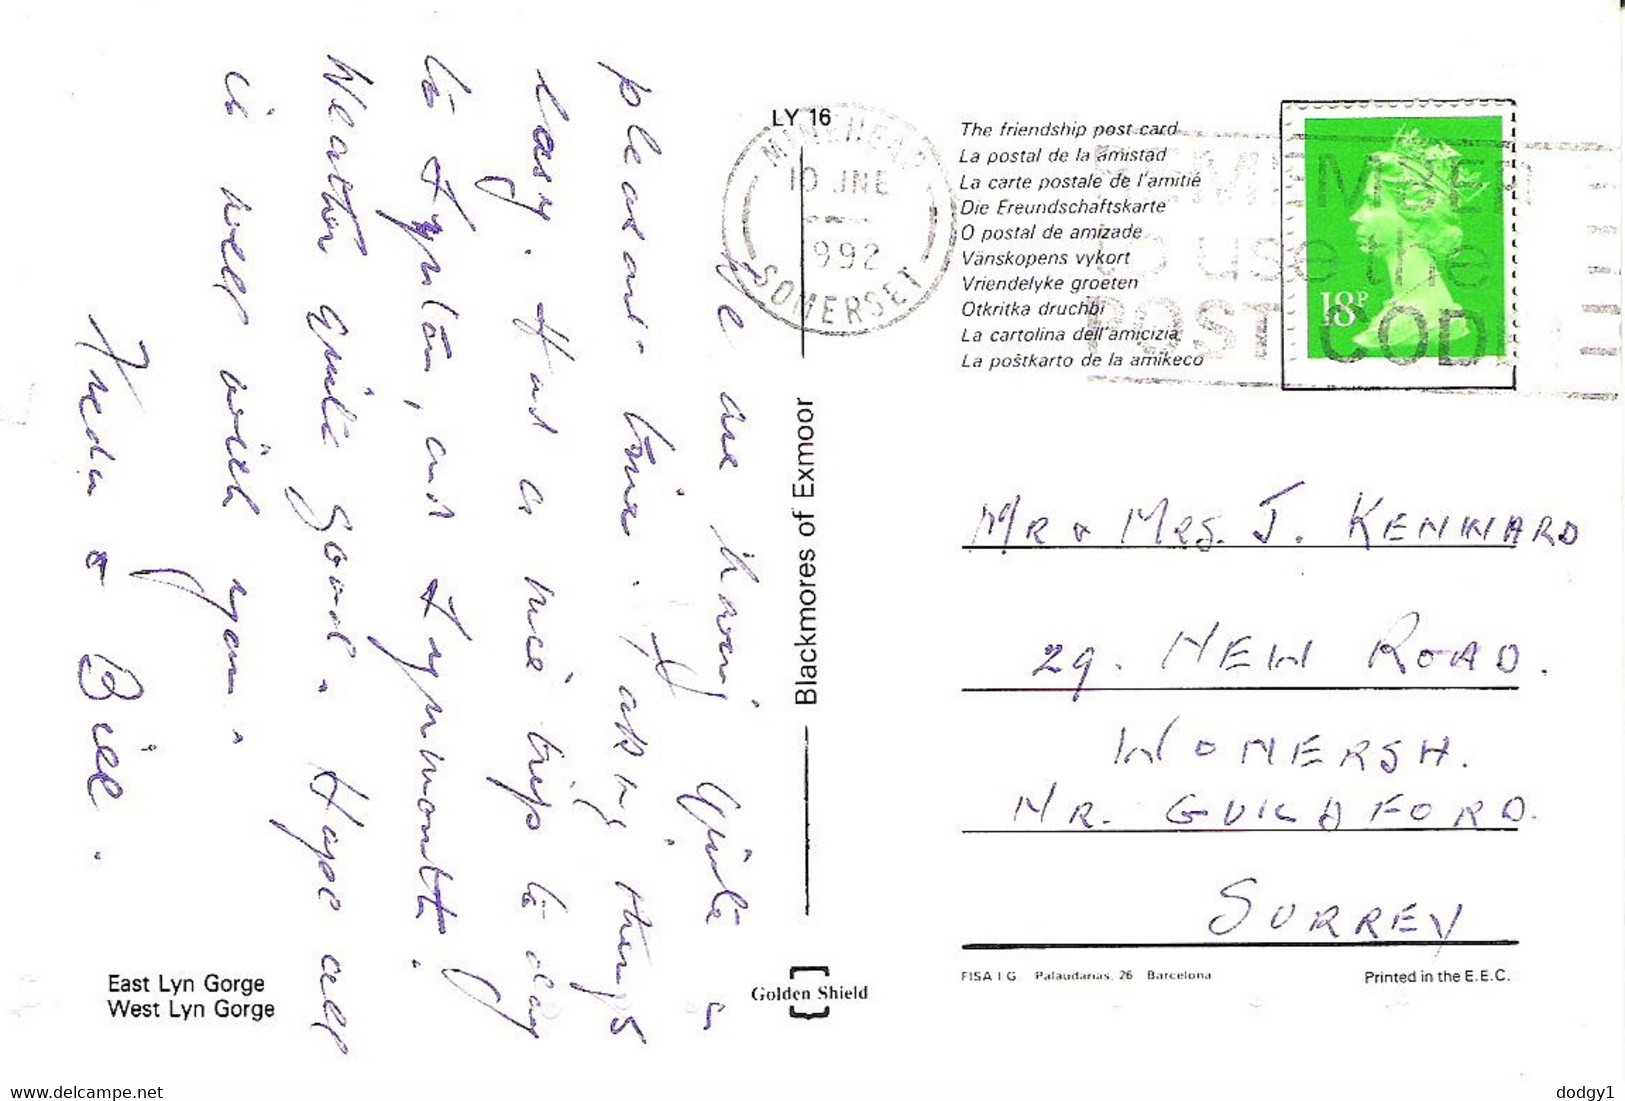 We are having quite a
pleasant time. Taking things
easy. Had a nice trip to day
to Lynton, and Lynmouth.
Weather quite good. Hope all
is well with you.
Freda & Bill.
East Lyn Gorge
West Lyn Gorge
LY 16
MINEHEAD
10 JNE
1992
SOMERSET
Blackmores of Exmoor
Golden Shield
The friendship post card
La postal de la amistad
La carte postale de l'amitié
Die Freundschaftskarte
O postal de amizade
Vänskopens vykort
Vriendelyke groeten
Otkritka druchbi
La cartolina dell'amicizia
La poŝtkarto de la amikeco
REMEMBER
to use the
POST CODE
18P
MR & MRS. J. KENWARD
29. NEW ROAD.
WONERSH.
NR. GUILDFORD.
SURREY
FISA I G Palaudarias, 26 Barcelona
Printed in the E.E.C.
delcampe.net
dodgy1